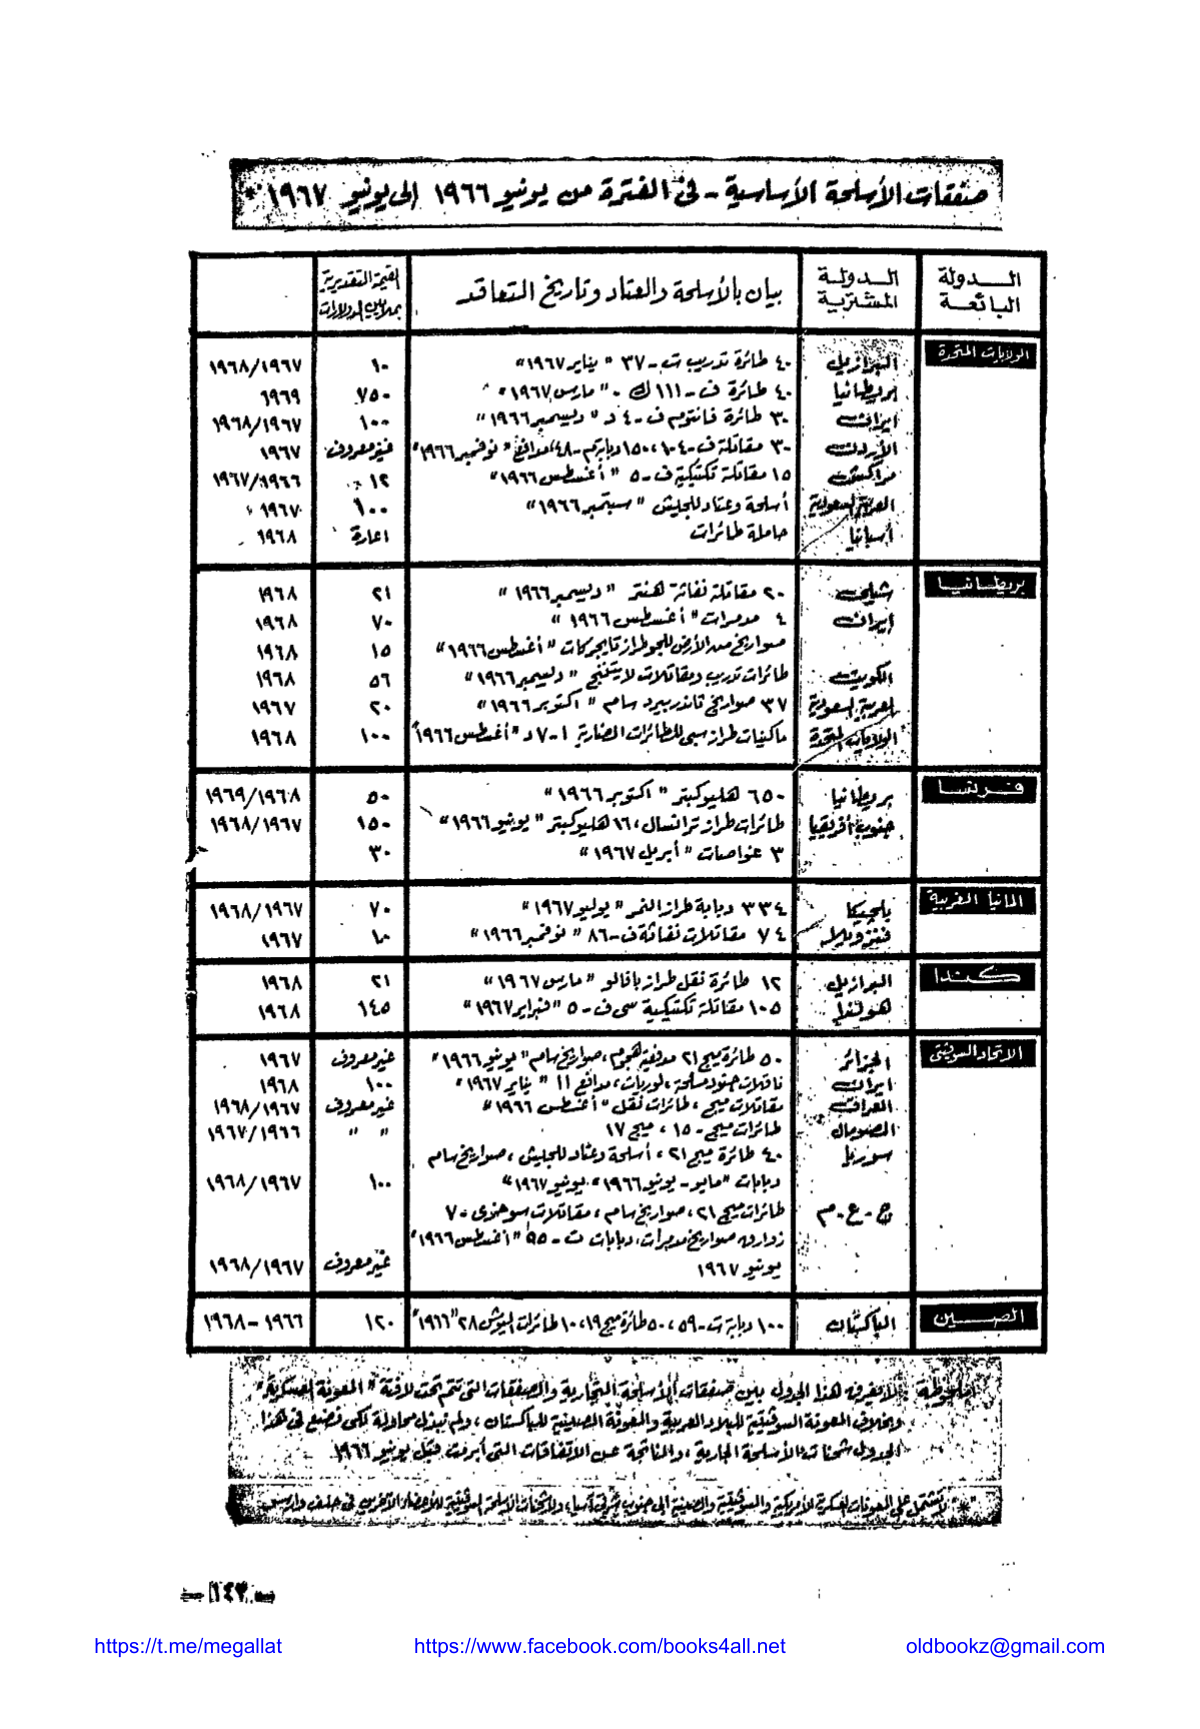 صفقات الأسلحة الأساسية - فى الفترة من يونيو ١٩٦٦ إلى يونيو ١٩٦٧ *
الدولة البائعة
الدولة المشترية
بيان بالأسلحة والعتاد وتاريخ التعاقد
القيمة التقديرية بملايين الدولارات
الولايات المتحدة
البرازيل ٤٠ طائرة تدريب ت - ٣٧ "يناير ١٩٦٧" ١٠ ١٩٦٨/١٩٦٧
بريطانيا ٤٠ طائرة ف - ١١١ ك - "مارس ١٩٦٧" ٧٥٠ ١٩٦٩
ايران ٣٠ طائرة فانتوم ف - ٤ د "ديسمبر ١٩٦٦" ١٠٠ ١٩٦٨/١٩٦٧
الأردن ٣٠ مقاتلة ف - ١٠٤، ١٥٠ دبابة م - ٤٨، مدافع "نوفمبر ١٩٦٦" غير معروف ١٩٦٧
مراكش ١٥ مقاتلة تكتيكية ف - ٥ "أغسطس ١٩٦٦" ١٢ ١٩٦٧/١٩٦٦
العربية السعودية أسلحة وعتاد للجيش "سبتمبر ١٩٦٦" ١٠٠ ١٩٦٧
أسبانيا حاملة طائرات اعارة ١٩٦٨
بريطانيا
شيلى ٢٠ مقاتلة نفاثة هنتر "ديسمبر ١٩٦٦" ٢١ ١٩٦٨
ايران ٤ مدمرات "أغسطس ١٩٦٦" ٧٠ ١٩٦٨
صواريخ من الأرض للجو طراز تايجر كات "أغسطس ١٩٦٦" ١٥ ١٩٦٨
الكويت طائرات تدريب ومقاتلات لايتننج "ديسمبر ١٩٦٦" ٥٦ ١٩٦٨
العربية السعودية ٣٧ صواريخ ثاندربيرد سام "أكتوبر ١٩٦٦" ٢٠ ١٩٦٧
الولايات المتحدة ماكينات طراز سبى للطائرات الضاربة ١ - ٧ د "أغسطس ١٩٦٦" ١٠٠ ١٩٦٨
فرنسا
بريطانيا ٦٥٠ هليوكبتر "اكتوبر ١٩٦٦" ٥٠ ١٩٦٩/١٩٦٨
جنوب أفريقيا طائرات طراز ترانسال، ١٦ هليوكبتر "يونيو ١٩٦٦" ١٥٠ ١٩٦٨/١٩٦٧
٣ غواصات "أبريل ١٩٦٧" ٣٠
المانيا الغربية
بلجيكا ٣٣٤ دبابة طراز النمر "يوليو ١٩٦٧" ٧٠ ١٩٦٨/١٩٦٧
فنزويلا ٧٤ مقاتلات نفاثة ف - ٨٦ "نوفمبر ١٩٦٦" ١٠ ١٩٦٧
كندا
البرازيل ١٢ طائرة نقل طراز بافالو "مارس ١٩٦٧" ٢١ ١٩٦٨
هولندا ١٠٥ مقاتلة تكتيكية سى ف - ٥ "فبراير ١٩٦٧" ١٤٥ ١٩٦٨
الاتحاد السوفيتى
الجزائر ٥٠ طائرة ميج ٢١ مدفعية هجوم، صواريخ سام "يونيو ١٩٦٦" غير معروف ١٩٦٧
ايران ناقلات جنود مسلحة، لوريات، مدافع ١١ "يناير ١٩٦٧" ١٠٠ ١٩٦٨
العراق مقاتلات ميج، طائرات نقل "أغسطس ١٩٦٦" غير معروف ١٩٦٨/١٩٦٧
الصومال طائرات ميج - ١٥، ميج ١٧ " " ١٩٦٧/١٩٦٦
سوريا ٤٠ طائرة ميج ٢١، أسلحة وعتاد للجيش، صواريخ سام
دبابات "مايو - يونيو ١٩٦٦، يونيو ١٩٦٧" ١٠٠ ١٩٦٨/١٩٦٧
ج.ع.م طائرات ميج ٢١، صواريخ سام، مقاتلات سوخوى - ٧
زوارق صواريخ مدمرات، دبابات ت - ٥٩ "أغسطس ١٩٦٦"
يونيو ١٩٦٧ غير معروف ١٩٦٨/١٩٦٧
الصين
الباكستان ١٠٠ دبابة ت - ٥٩، ٥٠ طائرة ميج ١٩، ١٠ طائرات اليوشن ٢٨ "١٩٦٦" ١٢٠ ١٩٦٦ - ١٩٦٨
ملحوظة : لا يفرق هذا الجدول بين صفقات الأسلحة التجارية والصفقات التى تتم تحت لافتة "المعونة العسكرية"
وبخلاف المعونة السوفيتية للبلاد العربية والمعونة الصينية للباكستان، ولم تبذل محاولة لكى نضع فى هذا
الجدول شحنات الأسلحة الجارية والناتجة عن الاتفاقات التى أبرمت قبل يونيو ١٩٦٦
* لا تشتمل على المعونات العسكرية الأمريكية والسوفيتية والصينية إلى جنوب شرقى آسيا، ولا شحنات الأسلحة السوفيتية للأعضاء الآخرين فى حلف وارسو
- ١٤٣ -
https://t.me/megallat https://www.facebook.com/books4all.net oldbookz@gmail.com